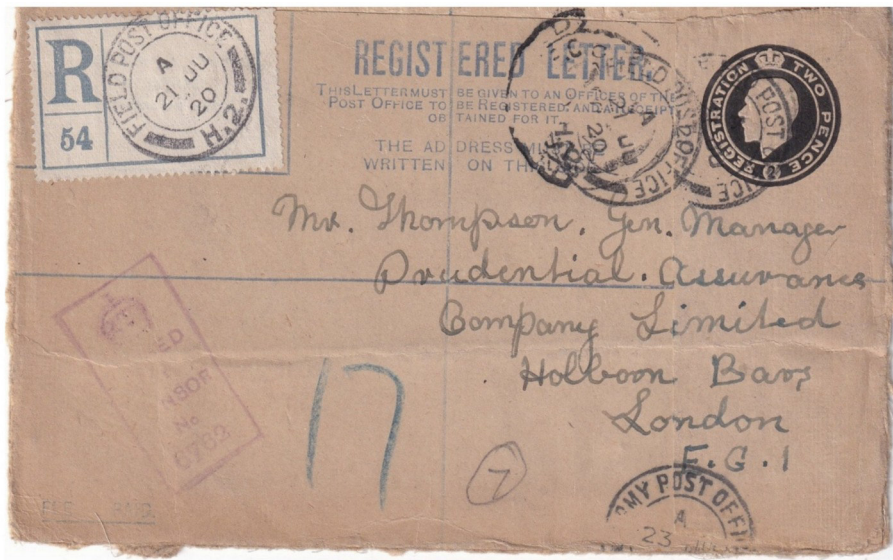 R
54
FIELD POST OFFICE
A
21 JU
20
H.2.
REGISTERED LETTER.
THIS LETTER MUST BE GIVEN TO AN OFFICER OF THE
POST OFFICE TO BE REGISTERED, AND A RECEIPT
OBTAINED FOR IT.
THE ADDRESS MUST BE
WRITTEN ON
REGISTRATION TWO PENCE
2
Mr. Thompson. Gen. Manager
Prudential. Assurance
Company Limited
Holborn Bars
London
E.C.1
No
6762
17
7
ARMY POST OFFI
A
23